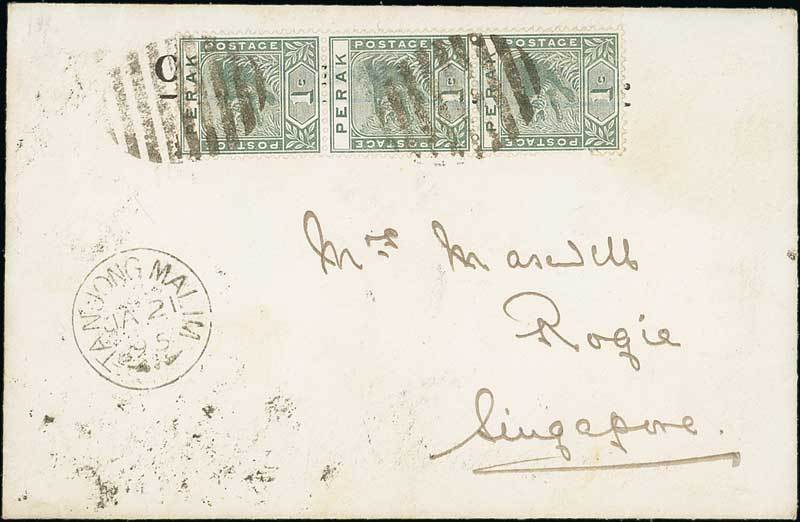 POSTAGE POSTAGE POSTAGE
PERAK PERAK PERAK
1c 1c 1c
POSTAGE POSTAGE POSTAGE
TANJONG MALIM
JA 21
95
Mrs Maxwell
Rogie
Singapore.